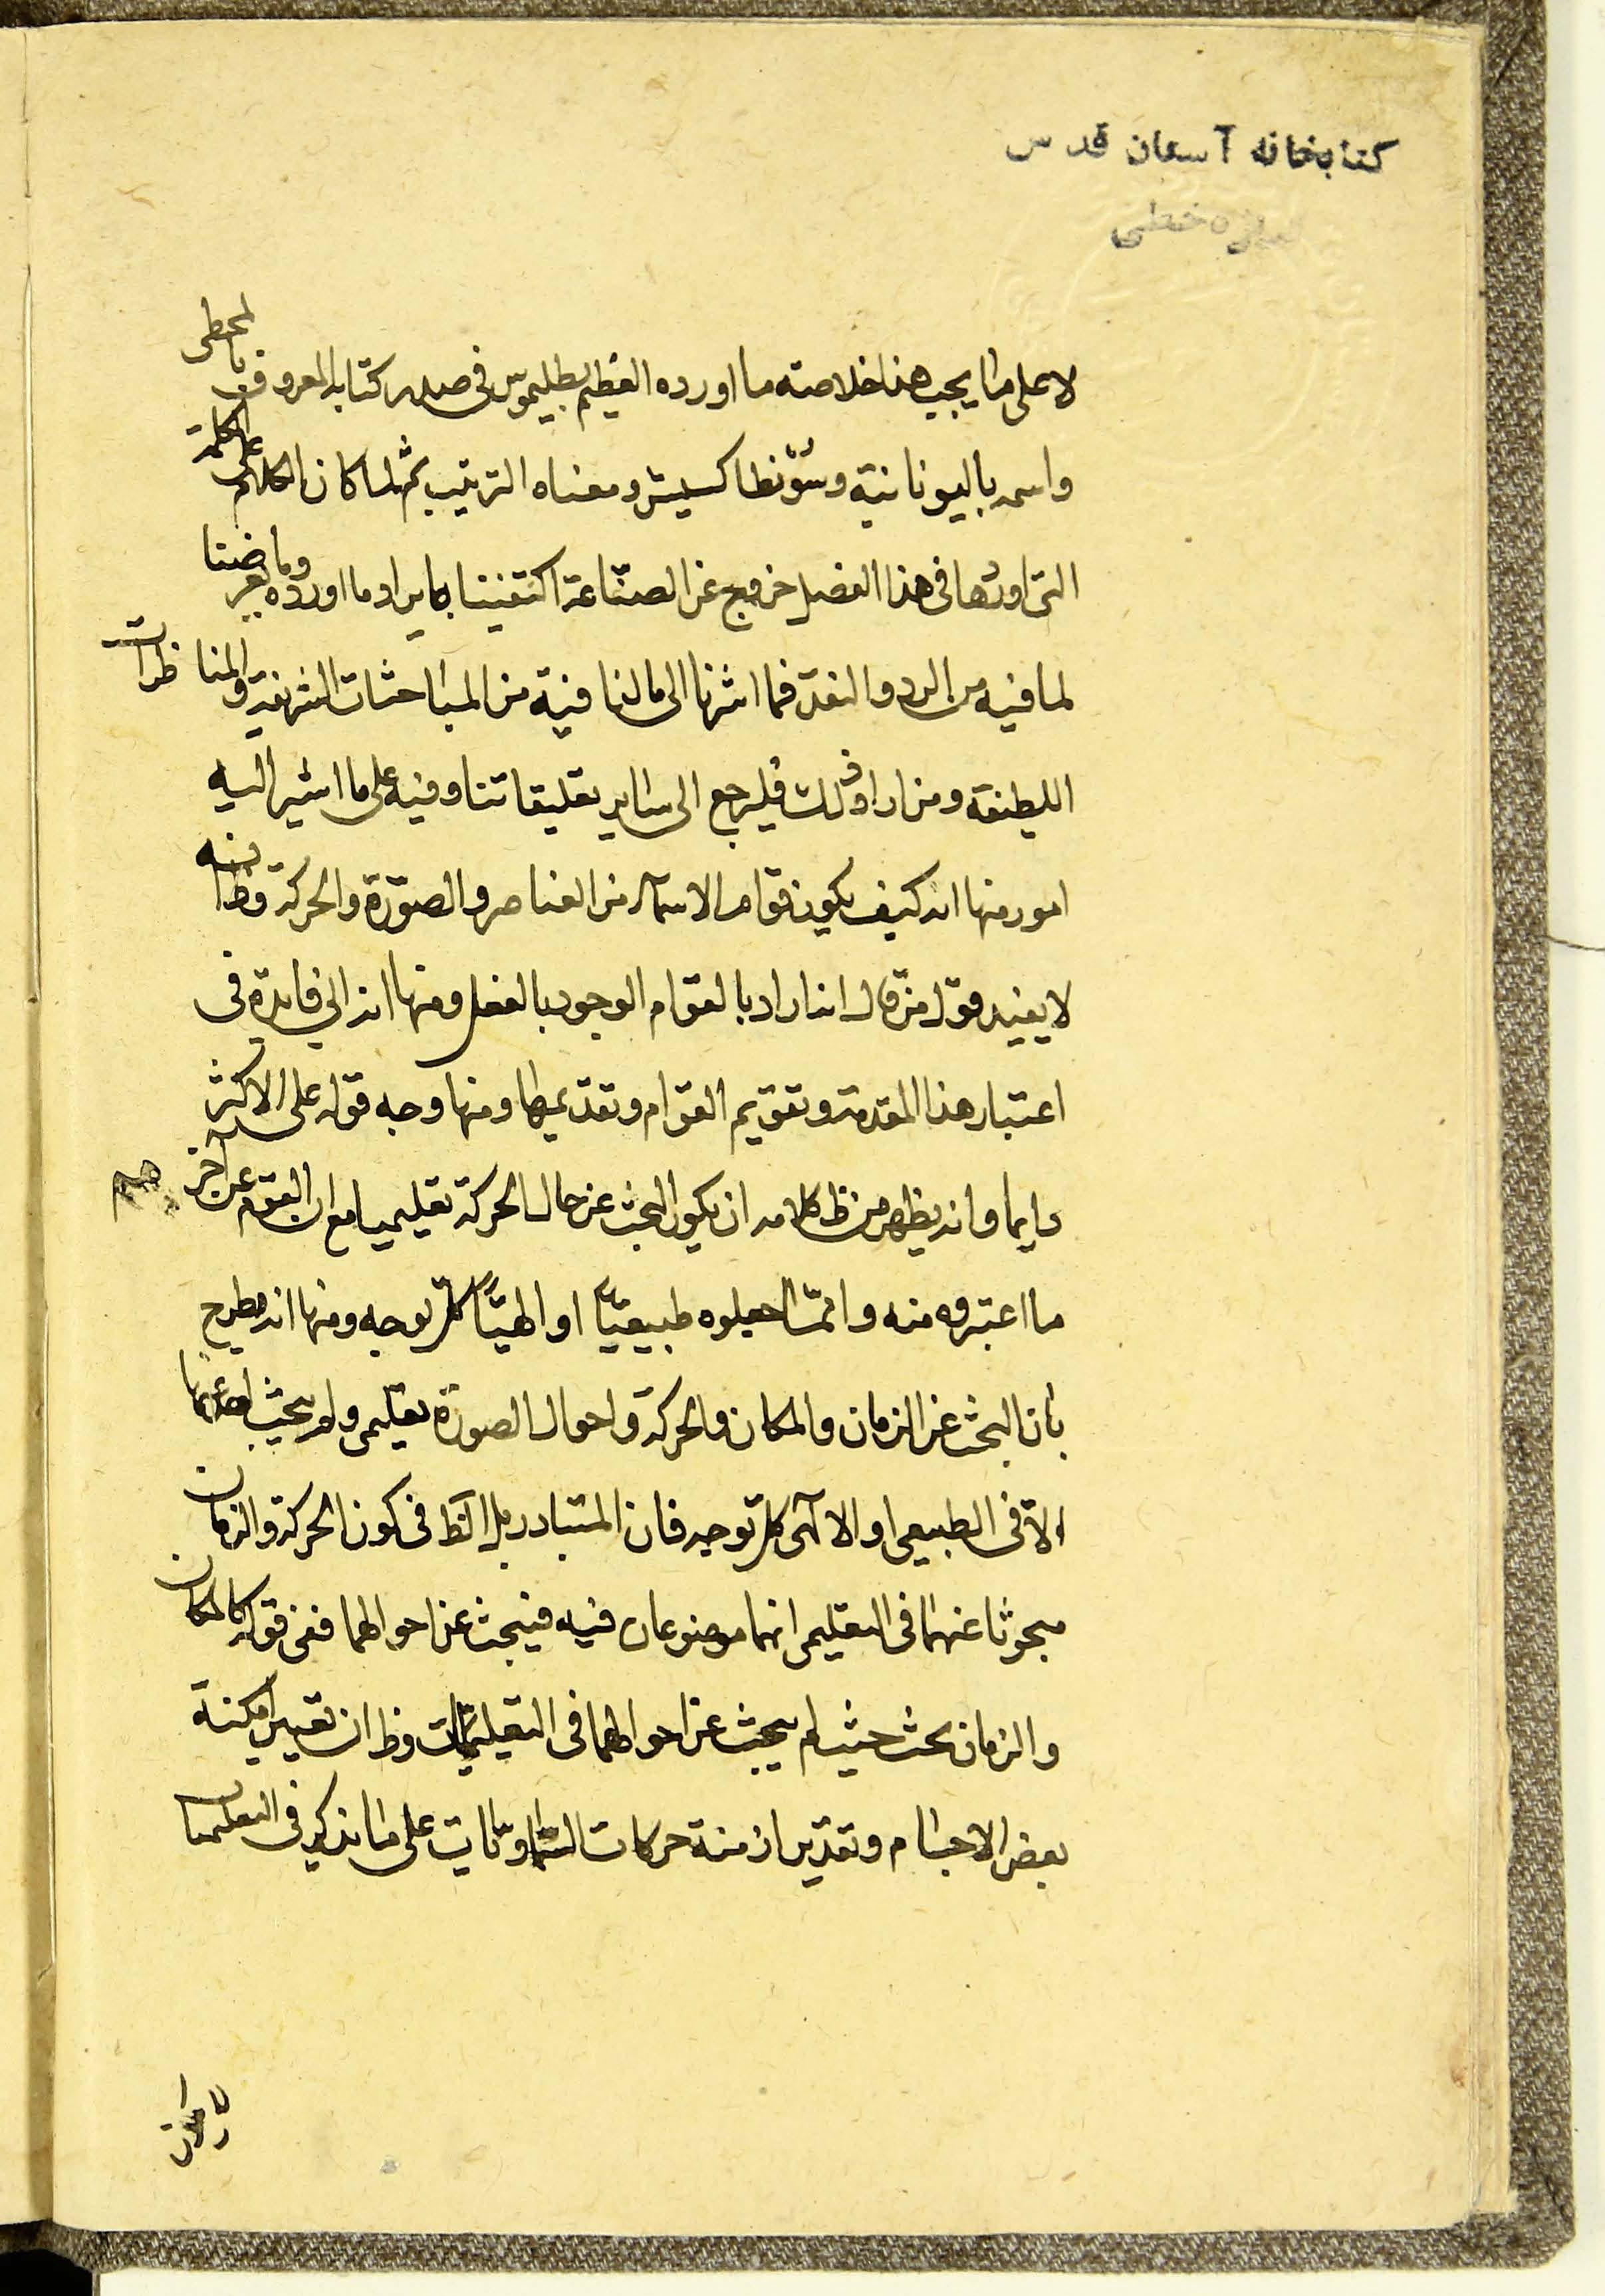 كتابخانه آستان قدس
خطى
لا على ما يجب هذا خلاصته ما اورده العظيم بطليموس فى صدر كتابه المعروف بالمجطى
واسمه باليونانية وسونطاكسيش ومعناه الترتيب ثم لما كان الكلام على الكلمة
التى اوردها فى هذا الفصل خروج عن الصناعة اكتفينا بايراد ما اورده وما تعرضنا
لما فيه من الرد والنقد فما اشرنا الى ما لنا فيه من المباحثات الشريفة والمناظرات
اللطيفة ومن اراد ذلك فليرجع الى ساير تعليقاتنا وفيه على ما اشير اليه
امور منها انه كيف يكون قوام الاسماء من العناصر والصورة والحركة وظ انه
لا يفيد قول من قال انه اراد بالقوام الوجود بالفعل ومنها انه اى فايدة فى
اعتبار هذا المقدمة وتقويم القوام وتقديمها ومنها وجه قوله على الاكثر
دايما وانه يظهر من ظ كلامه ان يكون البحث عن حال الحركة تعليميا مع ان القوم عن آخرهم
ما اعتبروه منه وانما جعلوه طبيعيا او الهيا كل بوجه ومنها انه مصرح
بان البحث عن الزمان والمكان والحركة واحوال الصورة تعليمى ولم يبحث احد عنها
الا فى الطبيعى او الالهى كل توجيه فان المتبادر بل الظ فى كون الحركة والزمان
مبحوثا عنهما فى التعليمى انهما موضوعان فيه فيبحث عن احوالهما ففى قوله كالمكان
والزمان بحث حيث لم يبحث عن احوالهما فى التعليميات وظ ان تعيين امكنة
بعض الاجسام وتقدير ازمنة حركات السماويات على ما يذكر فى التعليميات